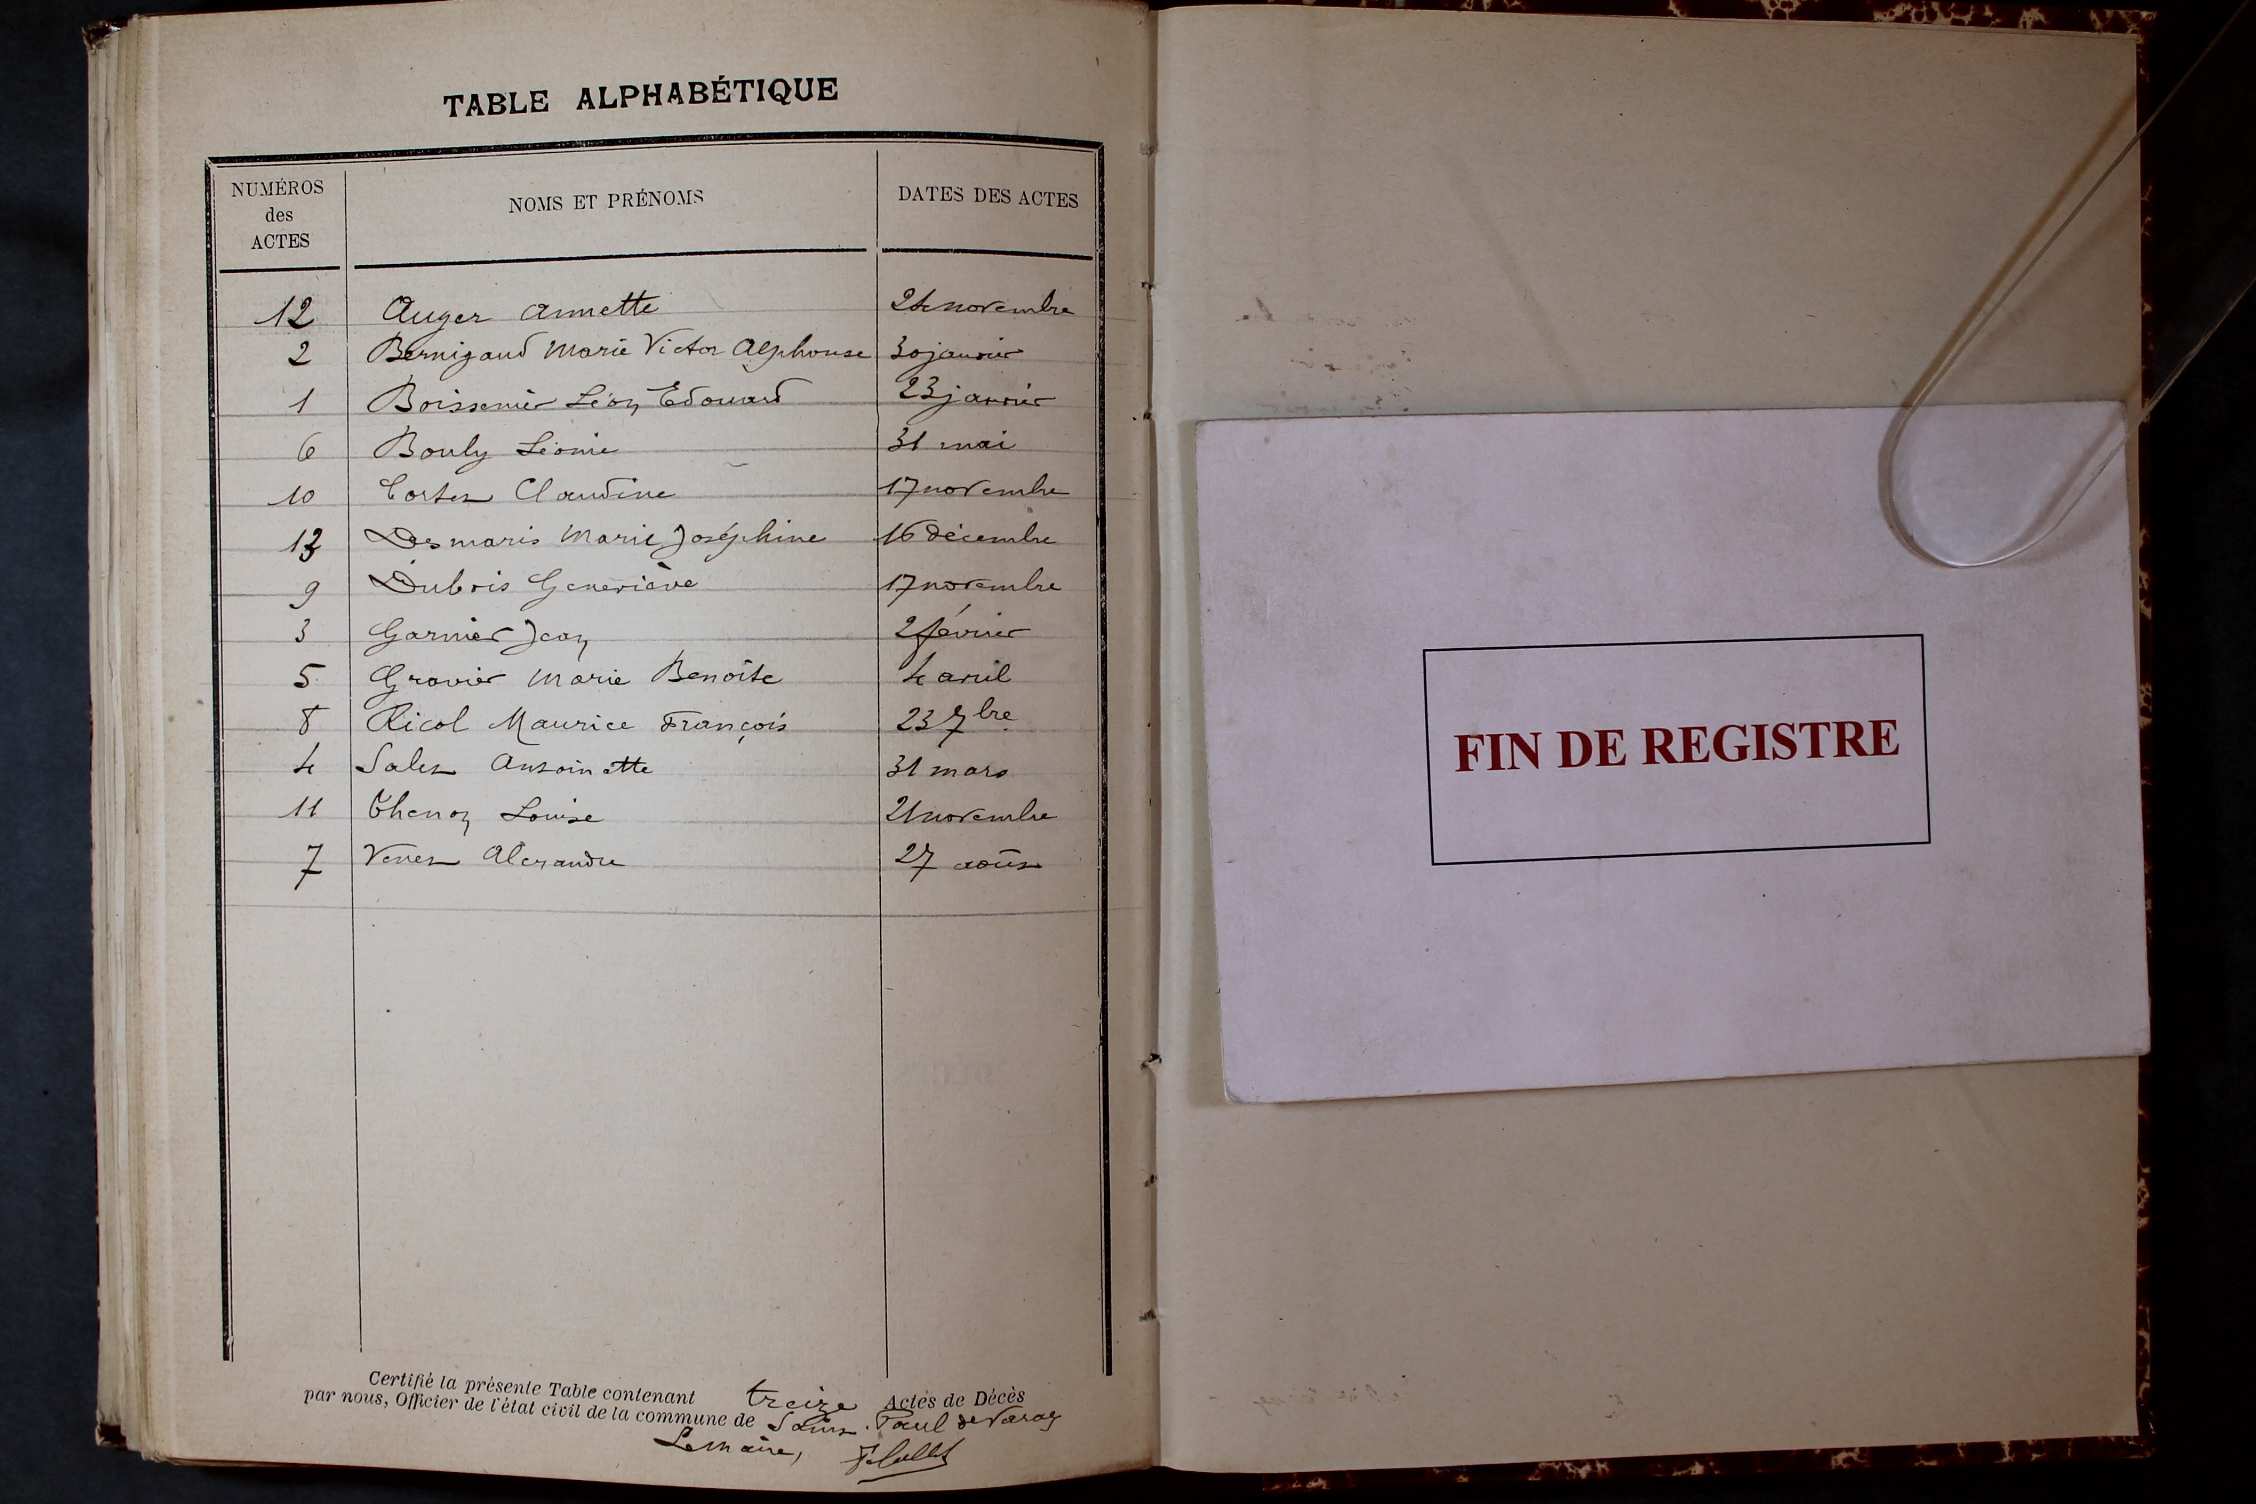 TABLE ALPHABÉTIQUE
NUMÉROS des ACTES NOMS ET PRÉNOMS DATES DES ACTES
12 Auger Annette 24 novembre
2 Bernigaud Marie Victor Alphonse 30 janvier
1 Boissenier Léon Edouard 23 janvier
6 Bouly Léonie 31 mai
10 Cortet Claudine 17 novembre
13 Desmaris Marie Joséphine 16 décembre
9 Dubois Geneviève 17 novembre
3 Garnier Jean 2 février
5 Gravier Marie Benoîte 4 avril
8 Ricol Maurice François 23 7bre
4 Salet Antoinette 31 mars
11 Thenon Louise 21 novembre
7 Venet Alexandre 27 août
Certifié la présente Table contenant treize Actes de Décès
par nous, Officier de l'état civil de la commune de Saint Paul de Varax
Le Maire,
FIN DE REGISTRE